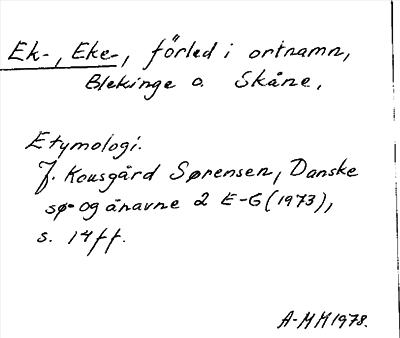 Ek-, Eke-, förled i ortnamn,
Blekinge o. Skåne.
Etymologi.
J. Kousgård Sørensen, Danske
sø- og ånavne 2 E-G (1973),
s. 14 ff.
A-MM 1978.